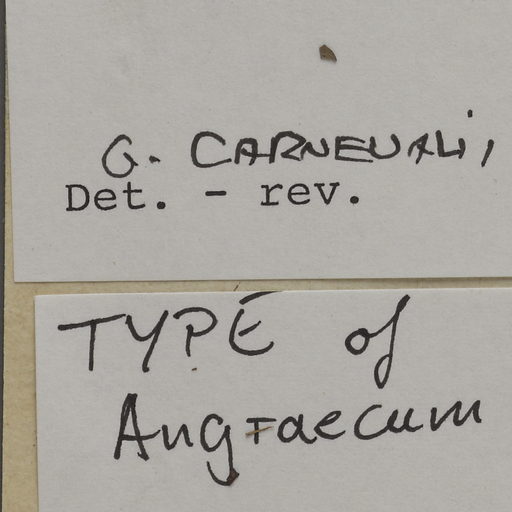 G. CARNEVALI,
Det. - rev.
TYPE of
Angraecum